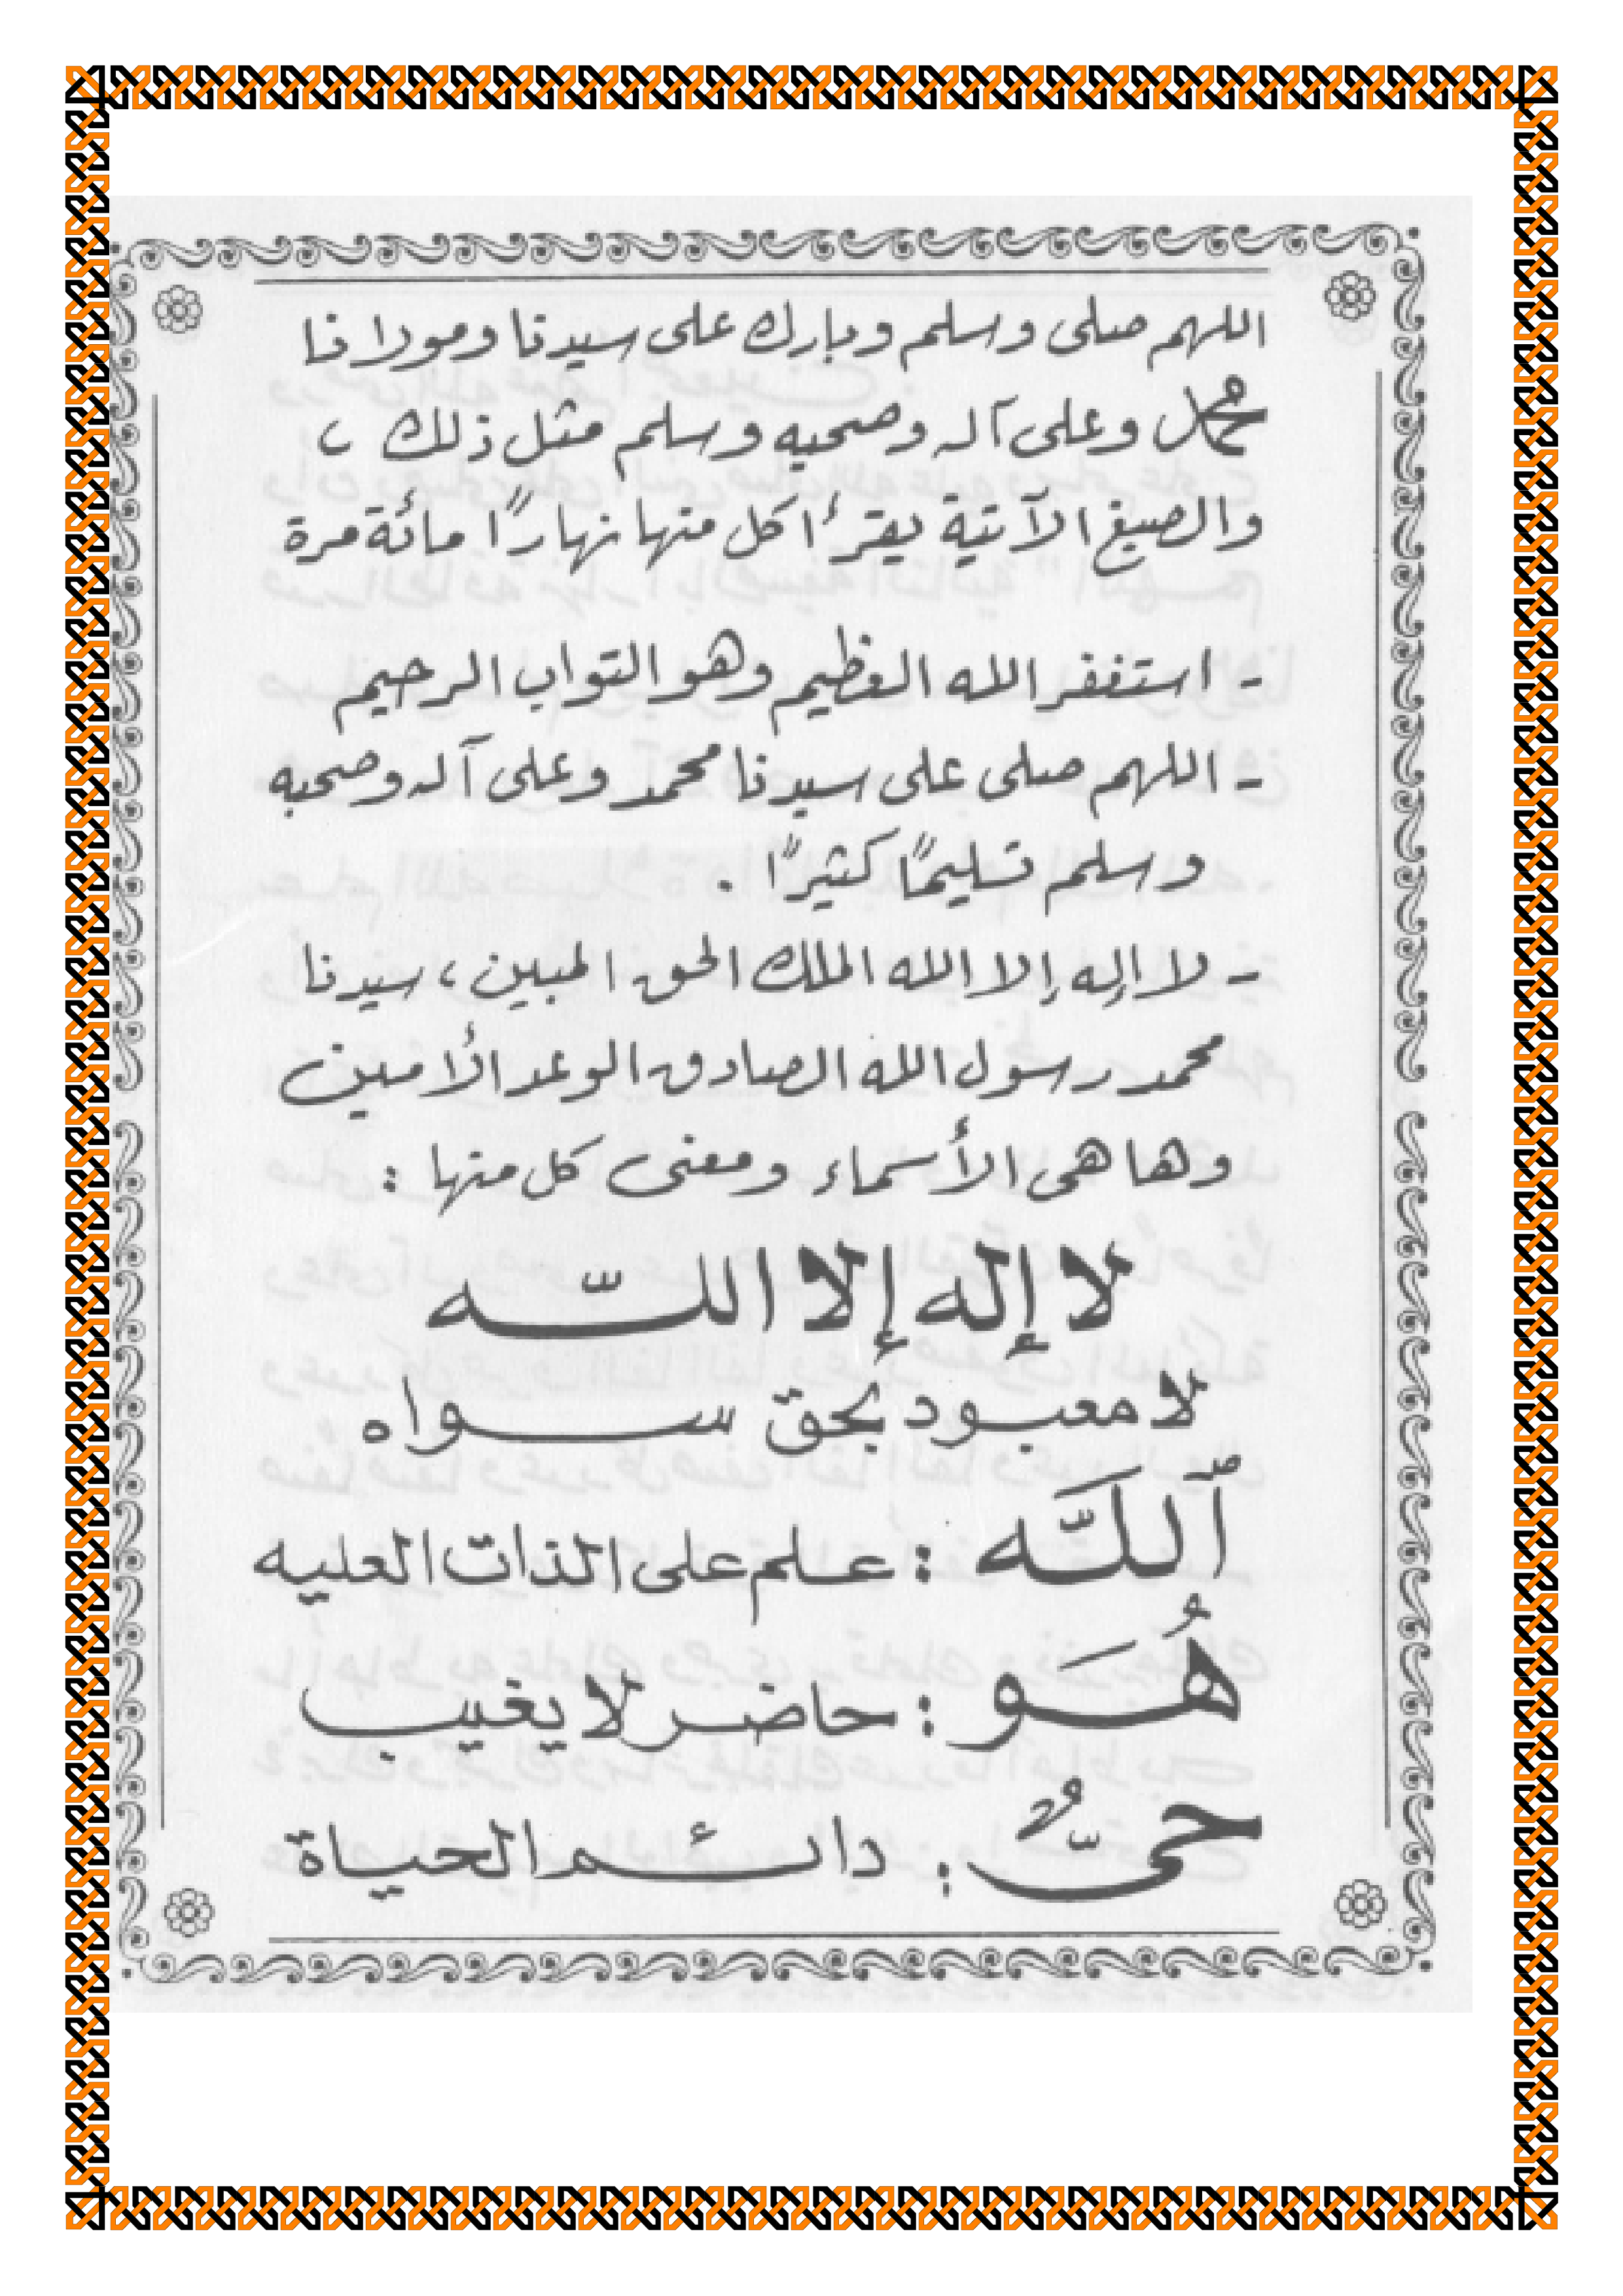 اللهم صلى وسلم وبارك على سيدنا ومولانا
محمد وعلى آله وصحبه وسلم مثل ذلك ،
والصيغ الآتية يقرأ كل منها نهارًا مائة مرة
- استغفر الله العظيم وهو التواب الرحيم
- اللهم صلى على سيدنا محمد وعلى آله وصحبه
وسلم تسليمًا كثيرًا .
- لا اله إلا الله الملك الحق المبين ، سيدنا
محمد رسول الله الصادق الوعد الأمين
وها هى الأسماء ومعنى كل منها :
لا إله إلا اللّه
لا معبود بحق سواه
ٱللَّه : علم على الذات العليه
هُوَ : حاضر لا يغيب
حىٌّ : دائم الحياة